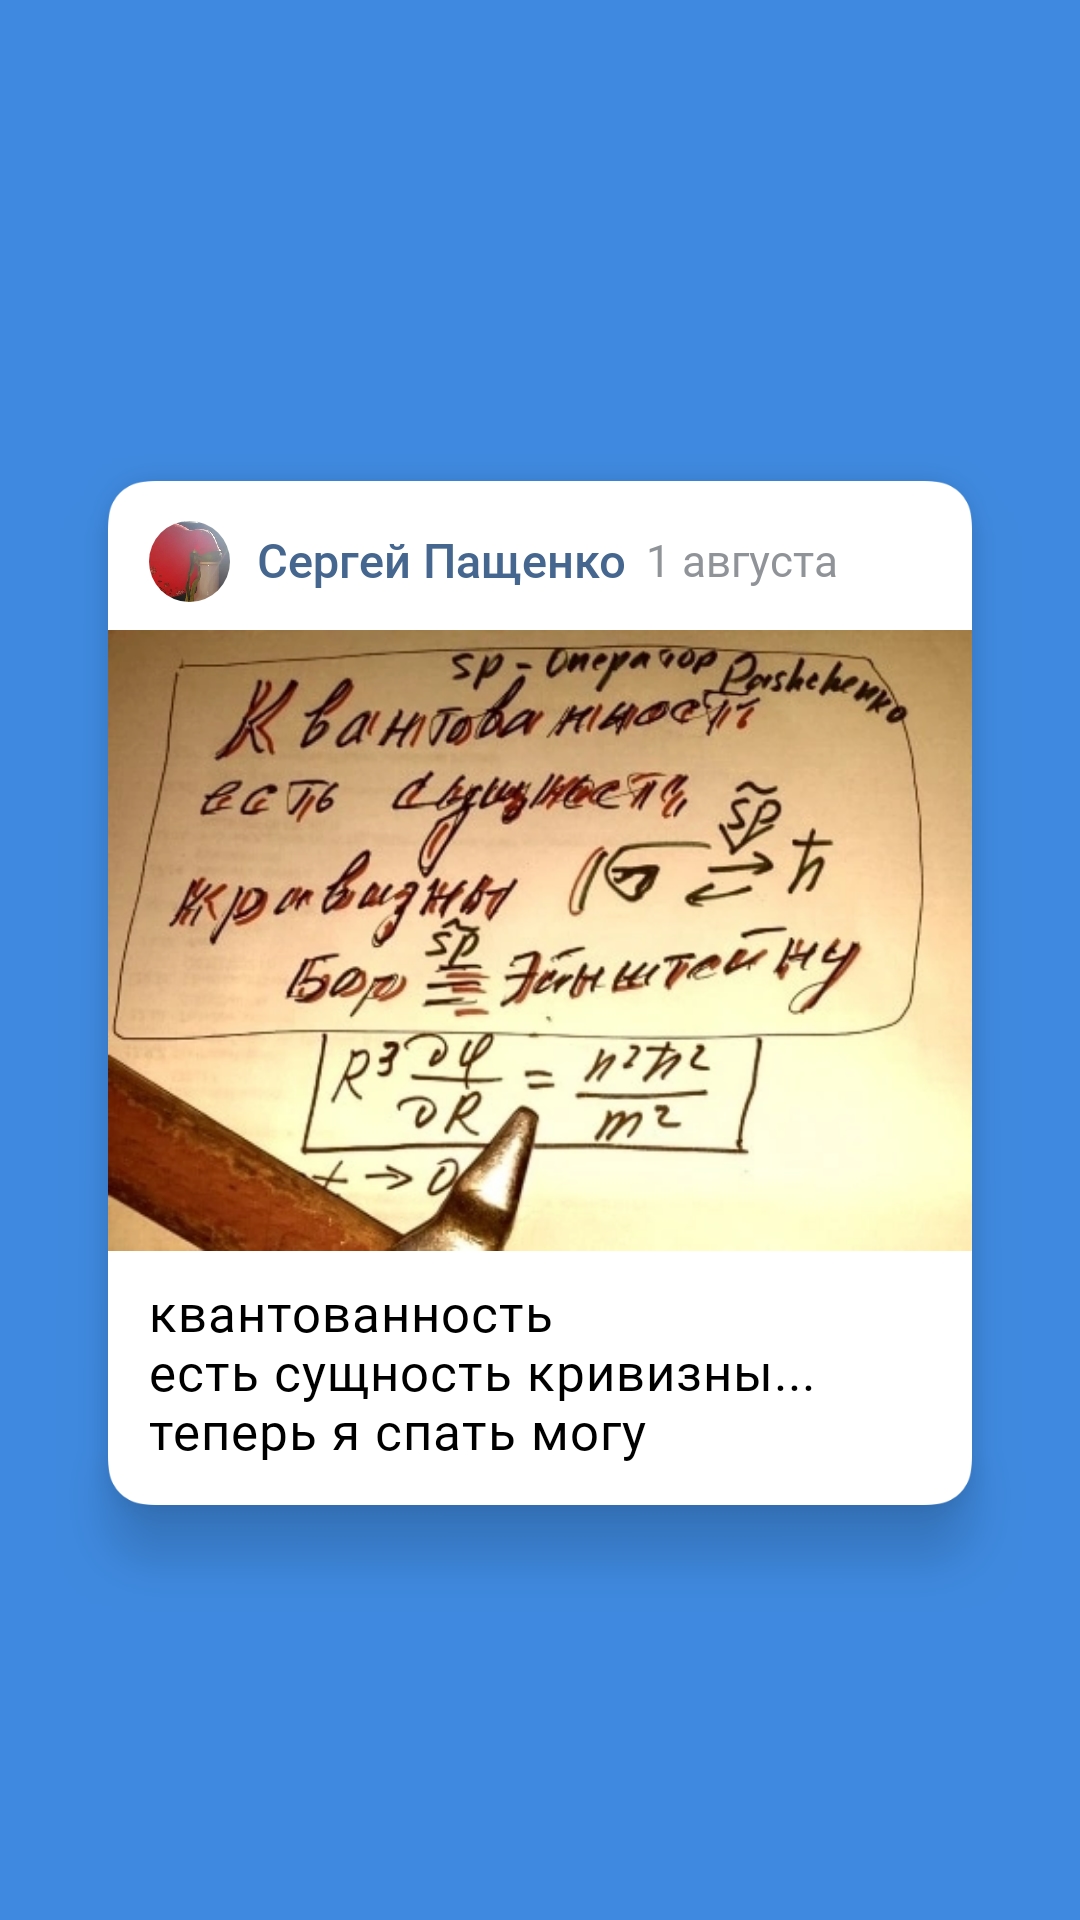 Сергей Пащенко 1 августа
sp - оператор Pashchenko
Квантованность
есть сущность
s̃p
кривизны ⇄ ħ
s̃p
Бор ≡ Эйнштейну
R³ ∂φ/∂R = n²ħ²/m²
t → 0
квантованность
есть сущность кривизны...
теперь я спать могу